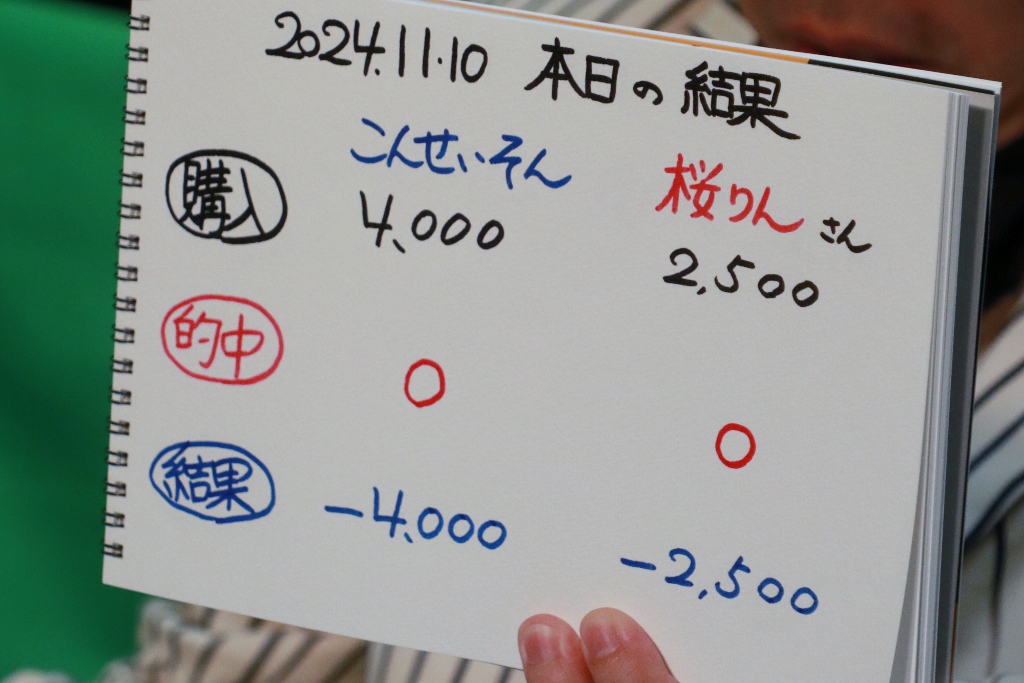 2024.11.10 本日の結果
こんせいそん 桜りんさん
購入 4,000 2,500
的中 0 0
結果 -4,000 -2,500